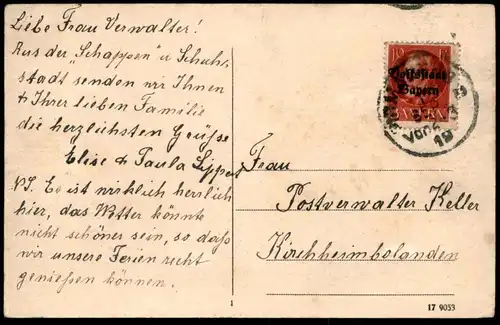 Liebe Frau Verwalter!
Aus der "Schappen" u Schuh-
stadt senden wir Ihnen
& Ihrer lieben Familie
die herzlichsten Grüße
Elise & Paula Lippert
PS. Es ist wirklich herrlich
hier, das Wetter könnte
nicht schöner sein, so daß
wir unsere Ferien recht
genießen können.
Frau
Postverwalter Keller
Kirchheimbolanden
10 PF
Volksstaat
Bayern
BAYERN
VORM
19
1
17 9053